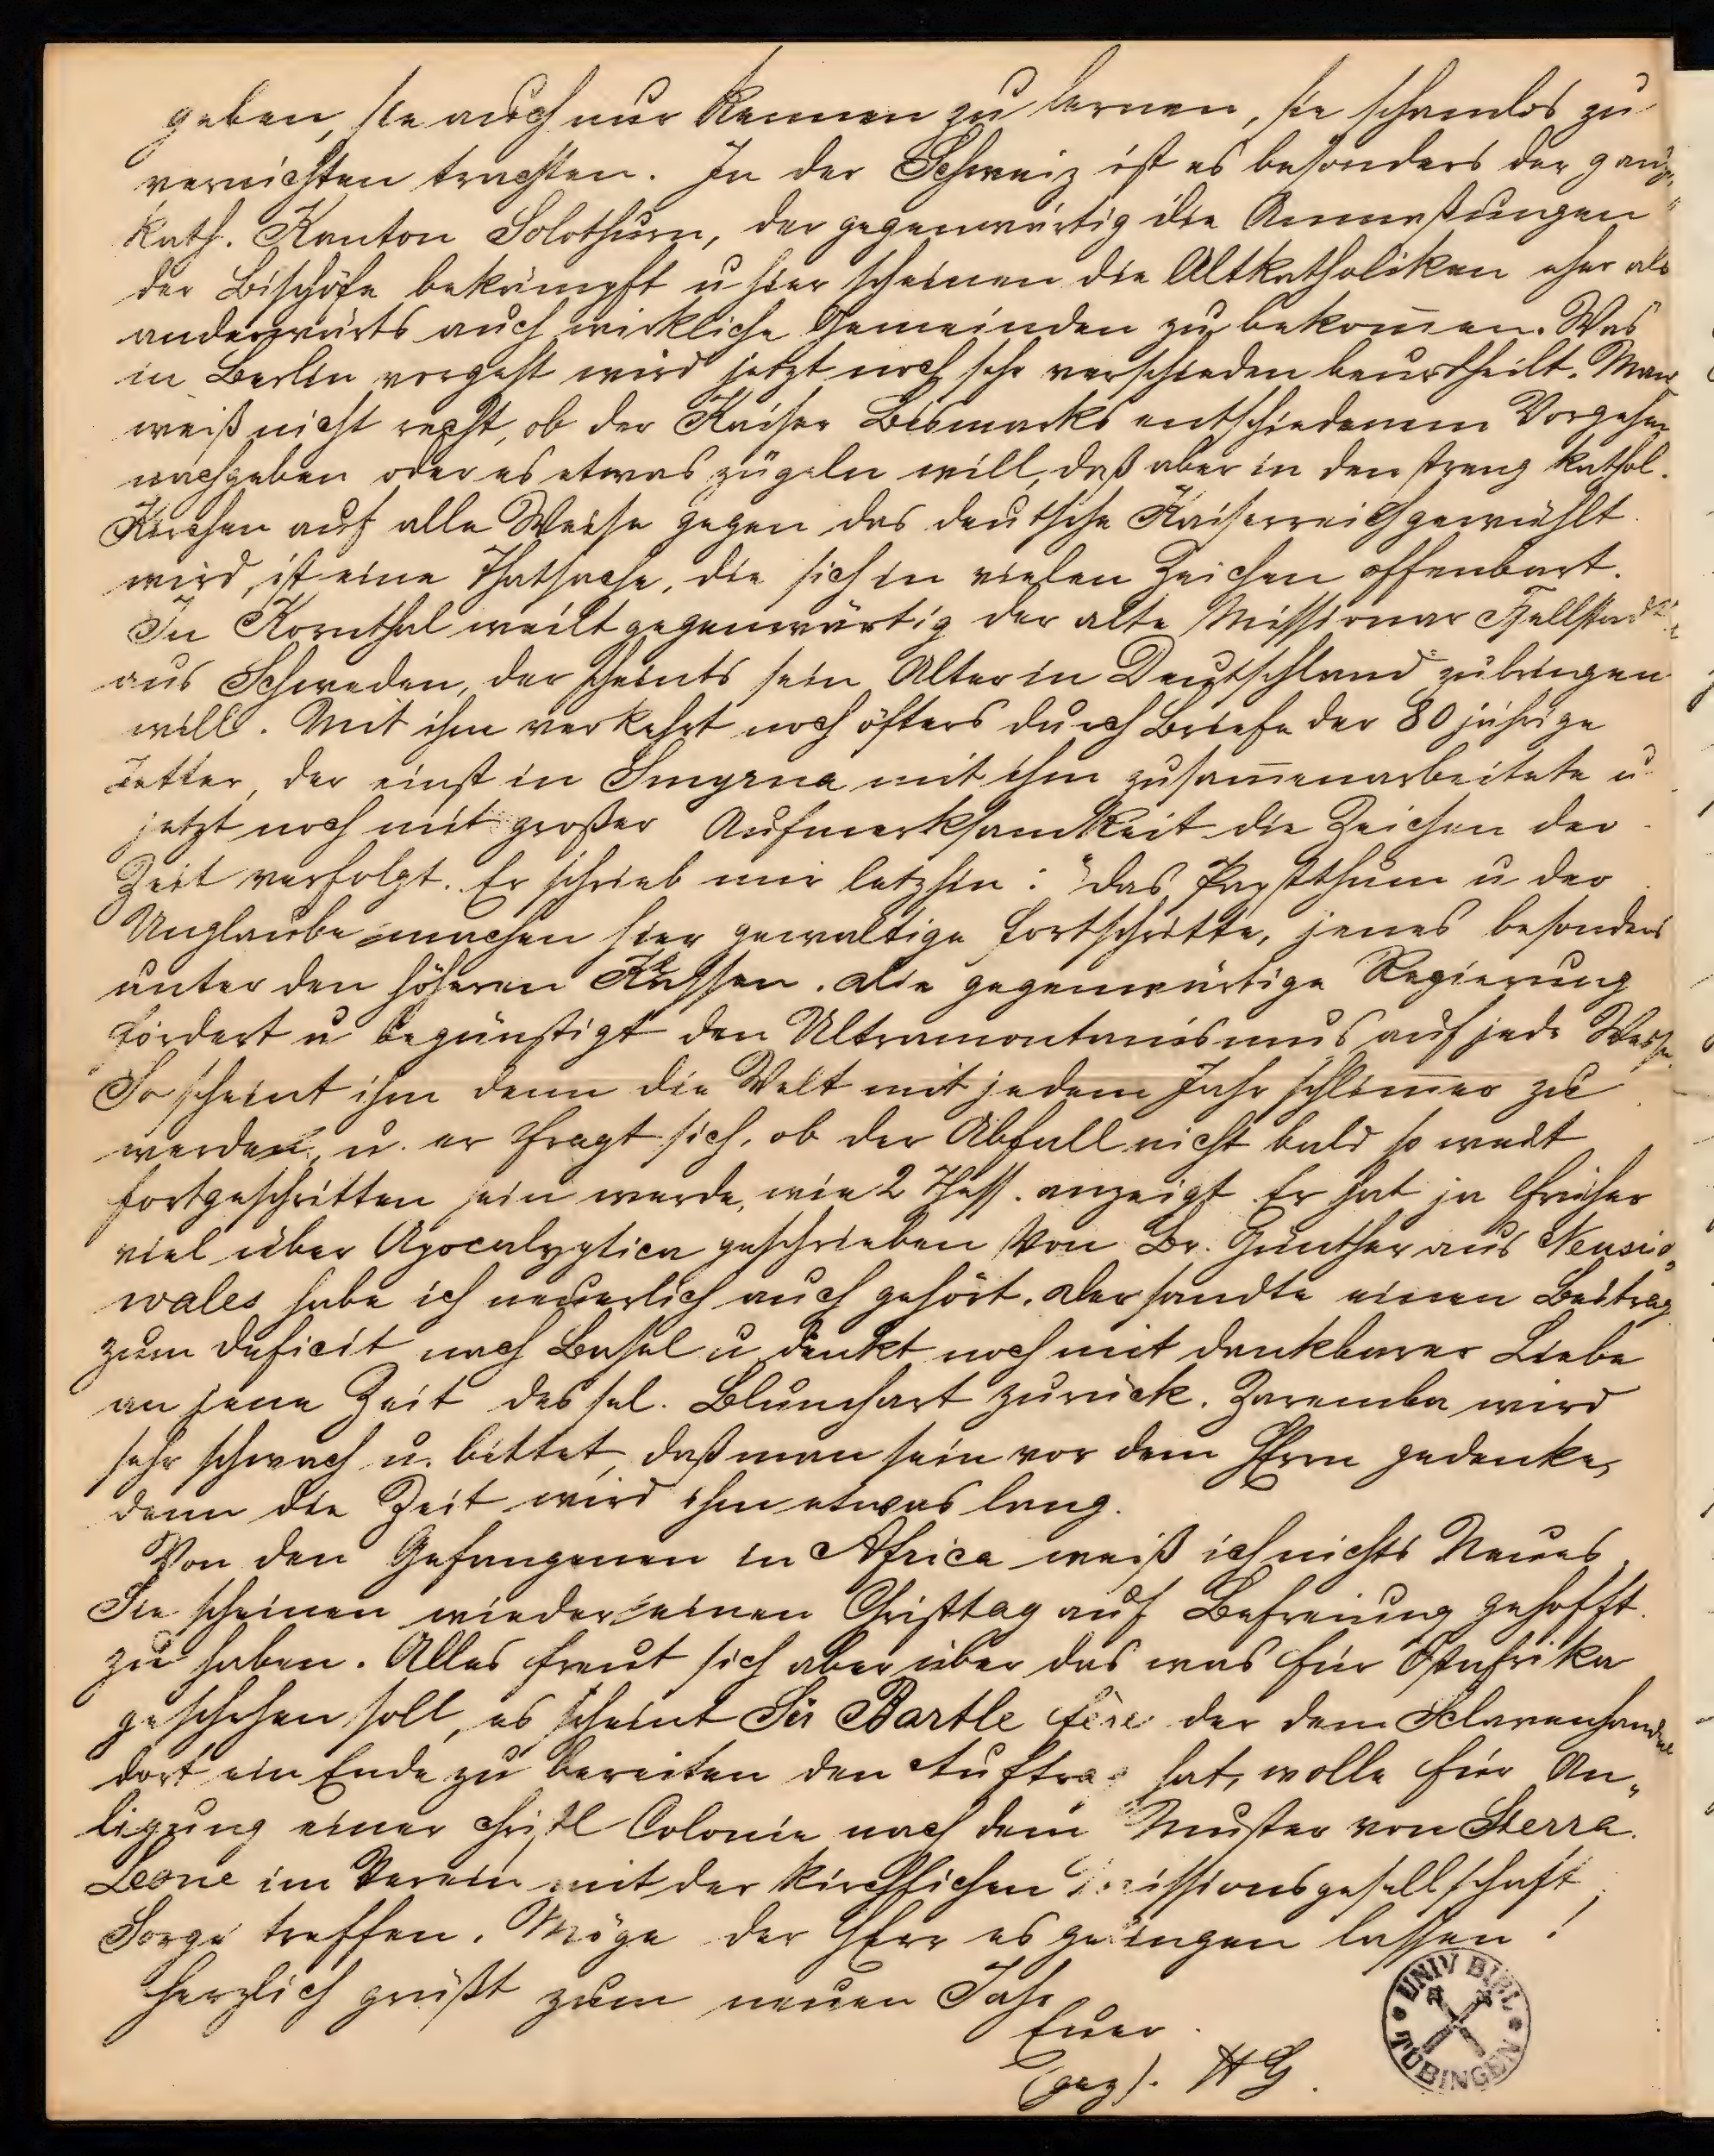 geben, sie auch nur kennen zu lernen, sie schamlos zu
vernichten trachten. In der Schweiz ist es besonders der ganz
kath. Kanton Solothurn, der gegenwärtig die Anmaßungen
der Bischöfe bekämpft u hier scheinen die Altkatholiken eher als
anderwärts auch wirkliche Gemeinden zu bekom̅en. Was
in Berlin vorgeht wird jetzt noch sehr verschieden beurtheilt. Man
weiß nicht recht, ob der Kaiser Bismarks entschiedenem Vorgehen
nachgeben oder es etwas zügeln will, daß aber in den streng kathol.
Kirchen auf alle Weise gegen das deutsche Kaiserreich gewühlt
wird, ist eine Thatsache, die sich in vielen Zeichen offenbart.
In Kornthal weilt gegenwärtig der alte Missionar Fjellstadt
aus Schweden, der scheints sein Alter in Deutschland zubringen
will. Mit ihm verkehrt noch öfters durch Briefe der 80 jährige
Jetter, der einst in Smyrna mit ihm zusam̅enarbeitete u.
jetzt noch mit großer Aufmerksamkeit die Zeichen der
Zeit verfolgt. Er schrieb mir letzhin: "das Papstthum u der
Unglaube machen hier gewaltige Fortschritte, jenes besonders
unter den höheren Klassen. Die gegenwärtige Regierung
fördert u begünstigt den Ultramontanismus auf jede Weise.
So scheint ihm denn die Welt mit jedem Jahr schlim̅er zu
werden, u. er fragt sich, ob der Abfall nicht bald so weit
fortgeschritten sein werde, wie 2 Thess. anzeigt Er hat ja früher
viel über Apocalyptica geschrieben Von Br. Günther aus Neusüd
wales habe ich neuerlich auch gehört. der sandte einen Beitrag
zum Deficit nach Basel u denkt noch mit dankbarer Liebe
an jene Zeit des sel. Blumhart zurück. Zaremba wird
sehr schwach u. bittet, daß man sein vor dem HErrn gedenke,
denn die Zeit wird ihm etwas lang.
Von den Gefangenen in Africa weiß ich nichts Neues.
Sie scheinen wieder einen Christtag auf Befreiung gehofft
zu haben. Alles freut sich aber über das was für Ostafrika
geschehen soll, es scheint Sir Bartle Fere der dem Sclavenhandel
dort ein Ende zu bereiten den Auftrag hat, wolle für An„
ligung einer christl Colonie nach dem Muster von Sierra
Leone im Verein mit der kirchlichen Missionsgesellschaft
Sorge treffen. Möge der HErr es gelingen lassen!
Herzlich grüßt zum neuen Jahr
Euer
(gez). HG.
UNIV BIBL
TÜBINGEN